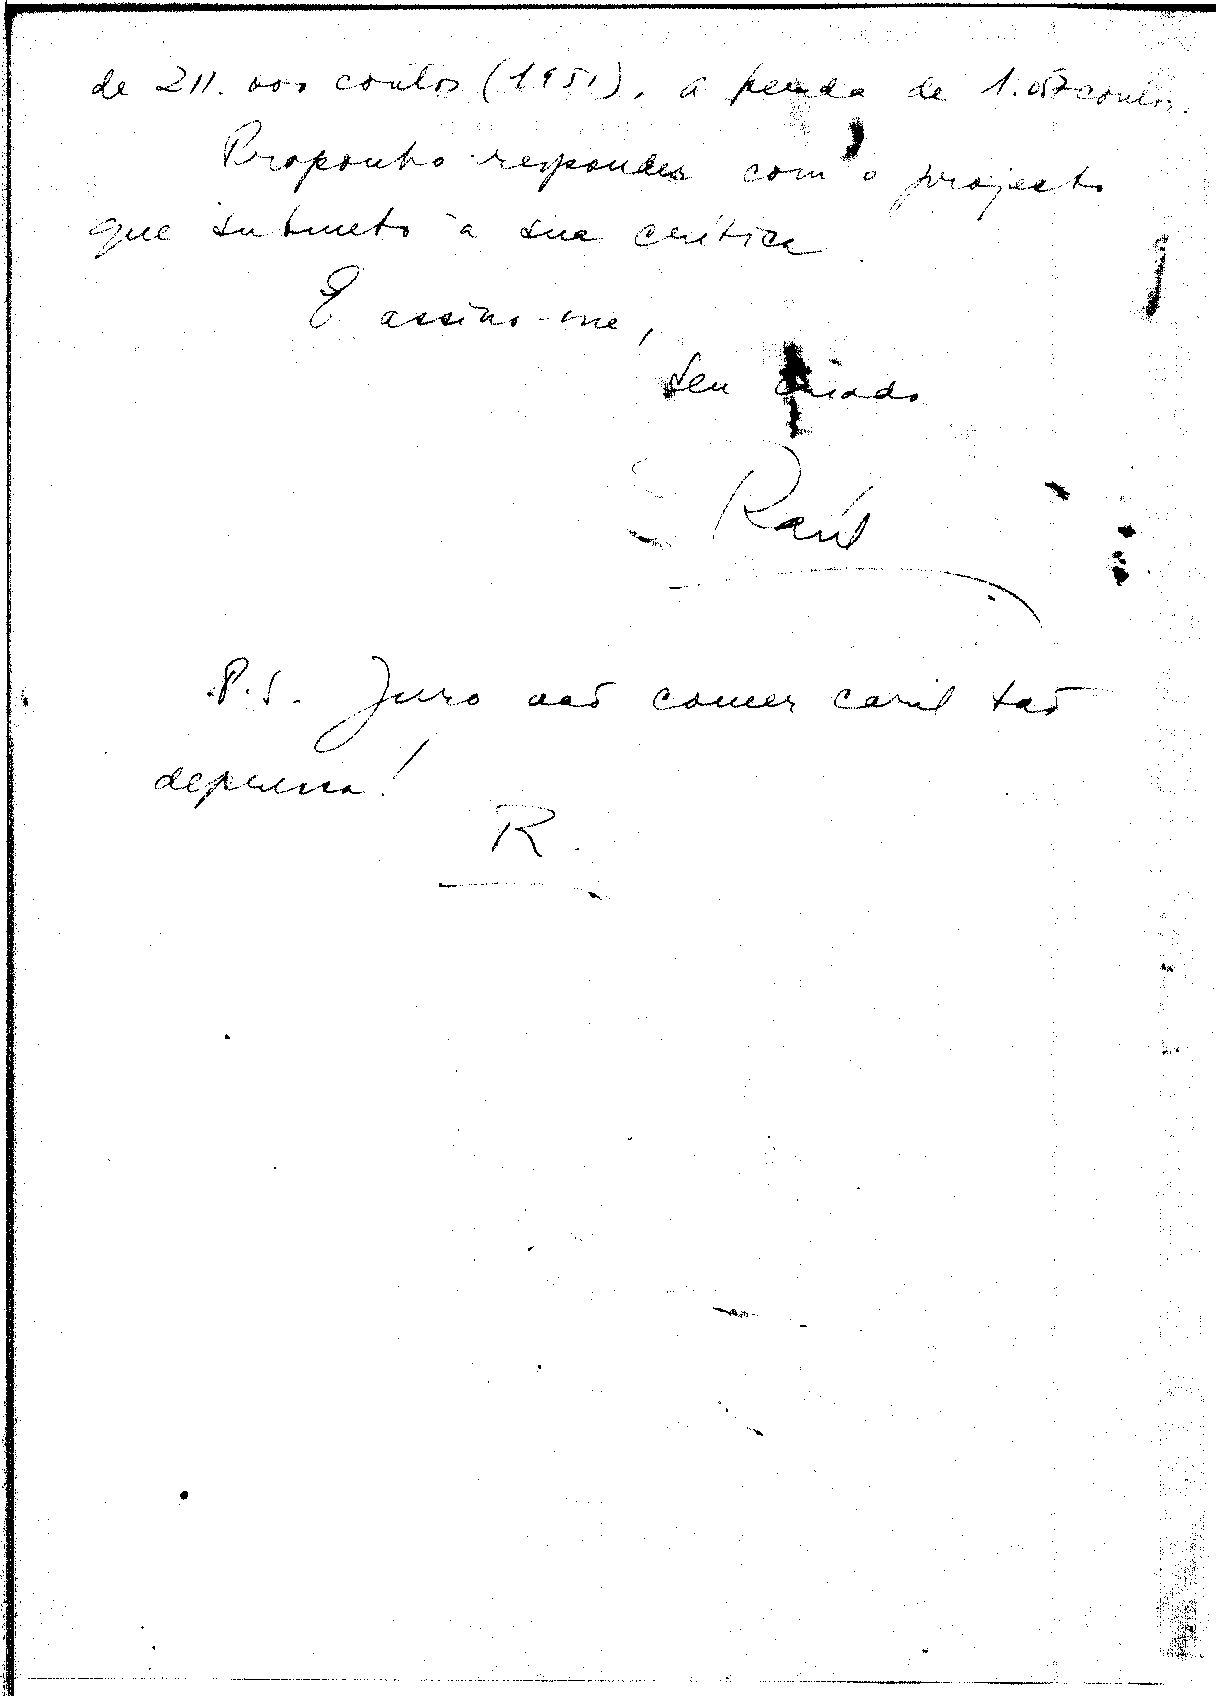 de 211.000 contos (1951), a perda de 1.057 contos.
Proponho responder com o projecto
que submeto à sua crítica.
E assino-me,
Seu criado
Raúl
P.S. Juro não comer caril tão
depressa!
R.